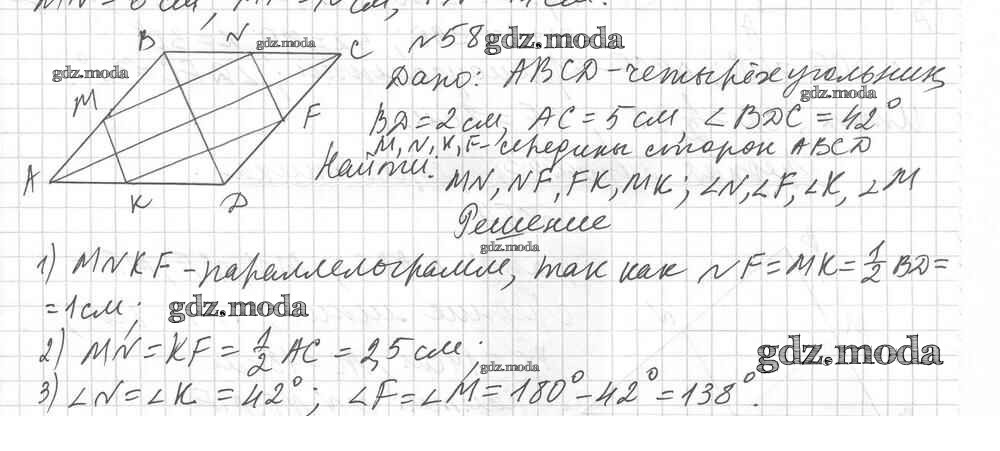 MN = 6 см,
B N gdz.moda C № 58 gdz.moda
gdz.moda Дано: ABCD - четырёхугольник
gdz.moda
M F BD = 2 см, AC = 5 см, ∠BDC = 42°
M, N, K, F - середины сторон ABCD
A K D Найти: MN, NF, FK, MK; ∠N, ∠F, ∠K, ∠M
Решение
gdz.moda
1) MNKF - параллелограмм, так как NF = MK = 1/2 BD =
= 1 см; gdz.moda
2) MN = KF = 1/2 AC = 2,5 см; gdz.moda
gdz.moda
3) ∠N = ∠K = 42°; ∠F = ∠M = 180° - 42° = 138°.